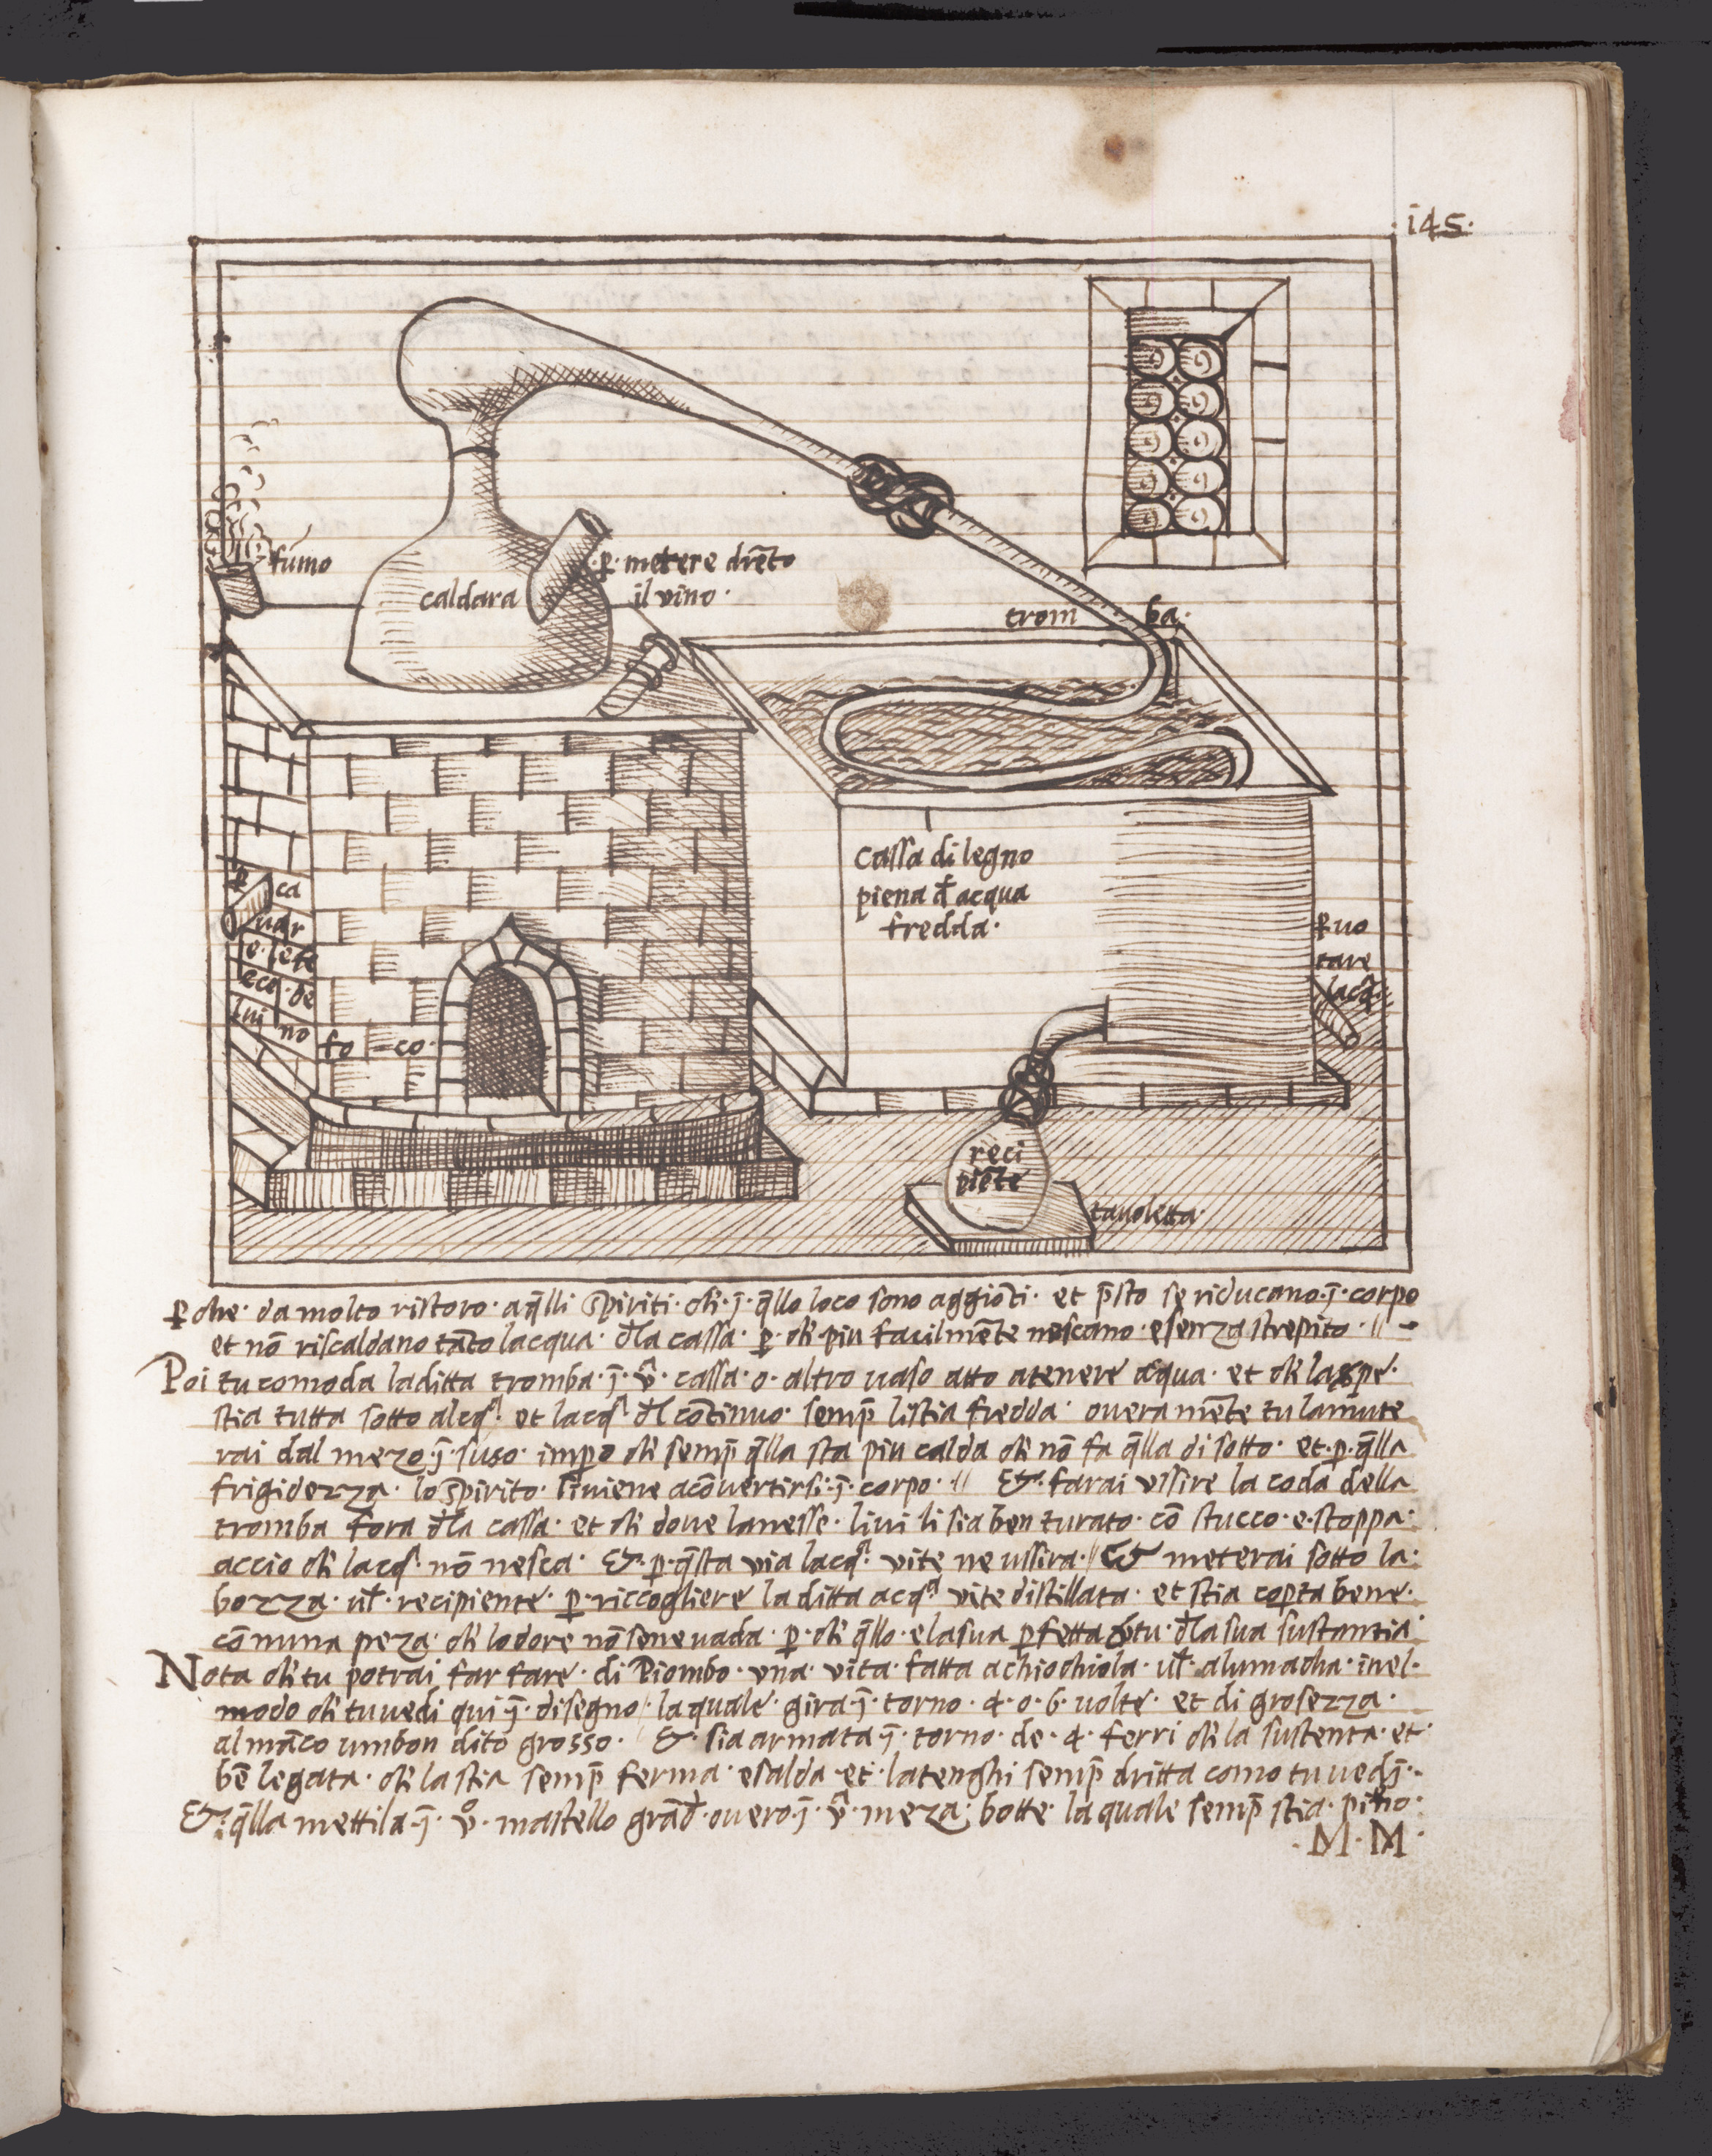 ·i45·
fumo
caldara
·ꝑ· metere drēto
il vino·
trom ba·
Cassa di legno
piena đ acqua
fredda·
ꝑ ca
uar
e· le fe
ece· de
lui no
fo = co·
ꝑ uo
tare
lacq̄·
reci
piēte
tauoletta·
ꝑ che· da molto ristoro· a q̄lli spiriti· ch̄· ī· q̄llo loco sono aggiōti· et p̄sto se riducano· ī· corpo
et nō riscaldano tāto lacqua· đla cassa· ꝑ· ch̄ piu facilmēte nescano· e senza strepito· //
Poi tu comoda la ditta tromba· ī· v̄ᵃ· cassa· o· altro uaso atto a tenere acqua· et ch̄ la
stia tutta sotto al acqᵃ· et lacqᵃ· đl cōtinuo· semp̄ li stia fredda· overamēte tu la mute
rai dal mezo ī· suso· impo ch̄ semp̄ q̄lla sta piu calda ch̄ nō fa q̄lla di sotto· et· ꝑ· q̄lla
frigidezza· lo spirito· si uiene a cōuertirsi· ī· corpo· // &· farai vssire la coda della
tromba fora đla cassa· et ch̄ doue la nesse· liui li sia ben turato· cō stucco· e· stoppa·
accio ch̄ lacqᵃ· nō nesca· &· ꝑ· q̄sta via lacqᵃ· vite ne ussira· // & meterai sotto la·
bozza· uł· recipiente· ꝑ· riccogliere la ditta acqᵃ vite distillata· et stia coꝑta bene·
cō nuna peza· ch̄ lodore nō se ne uada· ꝑ· ch̄ q̄llo· e la sua ꝑfetta đla sua sustantia·
Nota ch̄ tu potrai far fare· di Piombo· vna· vita· fatta a chiochiola· uł· alumacha· inel·
modo ch̄ tu uedi qui ī· disegno· la quale· gira ī· torno· 4· o· 6· uolte· et di grosezza·
al māco um bon dito grosso· &· sia armata ī· torno· de· 4· ferri ch̄ la sustenta· et·
bē legata· ch̄ la stia semp̄ ferma· e salda· et· la tenghi semp̄ dritta como tu uedi·
&· q̄lla mettila· ī· v̄º· mastello grāđ· ouero ī· v̄ᵃ· meza· botte· la quale semp̄ stia·
·M·M·